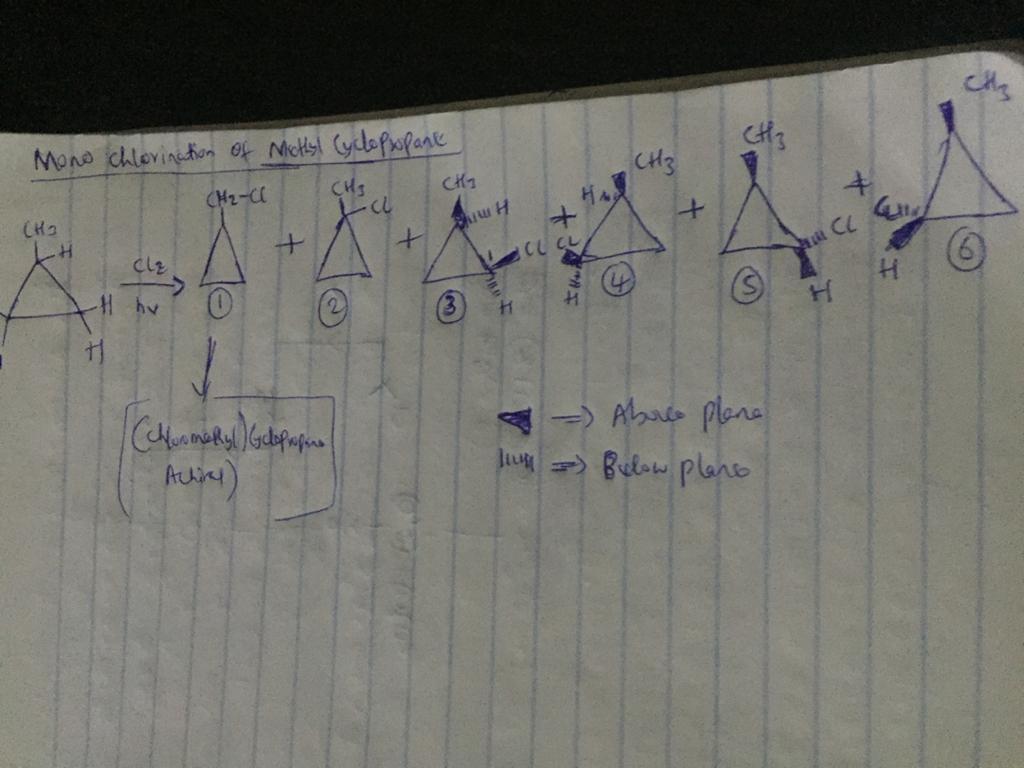 Mono chlorination of Methyl Cyclopropane
CH3 H H H
Cl2
hv
CH2-Cl
①
+
CH3 Cl
②
+
CH3 H Cl H
③
+
CH3 H Cl H
④
+
CH3 Cl H
⑤
+
CH3 H
⑥
(Chloromethyl) Cyclopropane
Achiral)
=> Above plane
=> Below plane